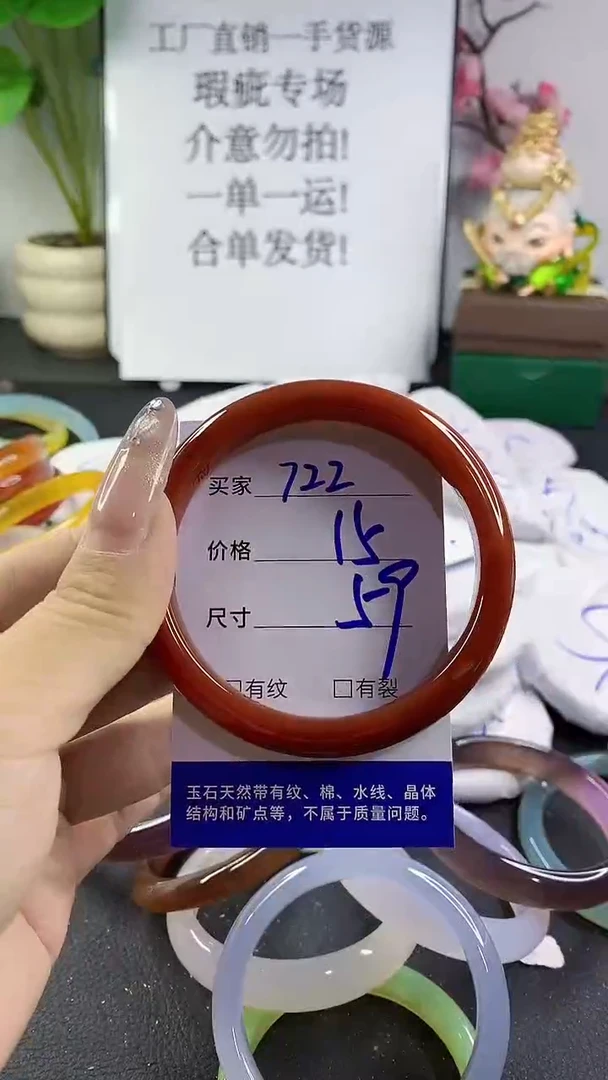 工厂直销一手货源
瑕疵专场
介意勿拍!
一单一运!
合单发货!
买家 722
价格 15
尺寸 59
□有纹 □有裂
玉石天然带有纹、棉、水线、晶体
结构和矿点等，不属于质量问题。